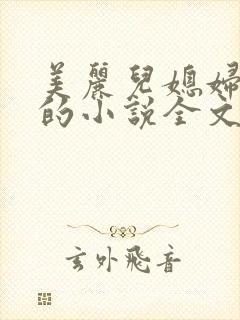 美麗兒媳婦
的小說全文
玄外飛音